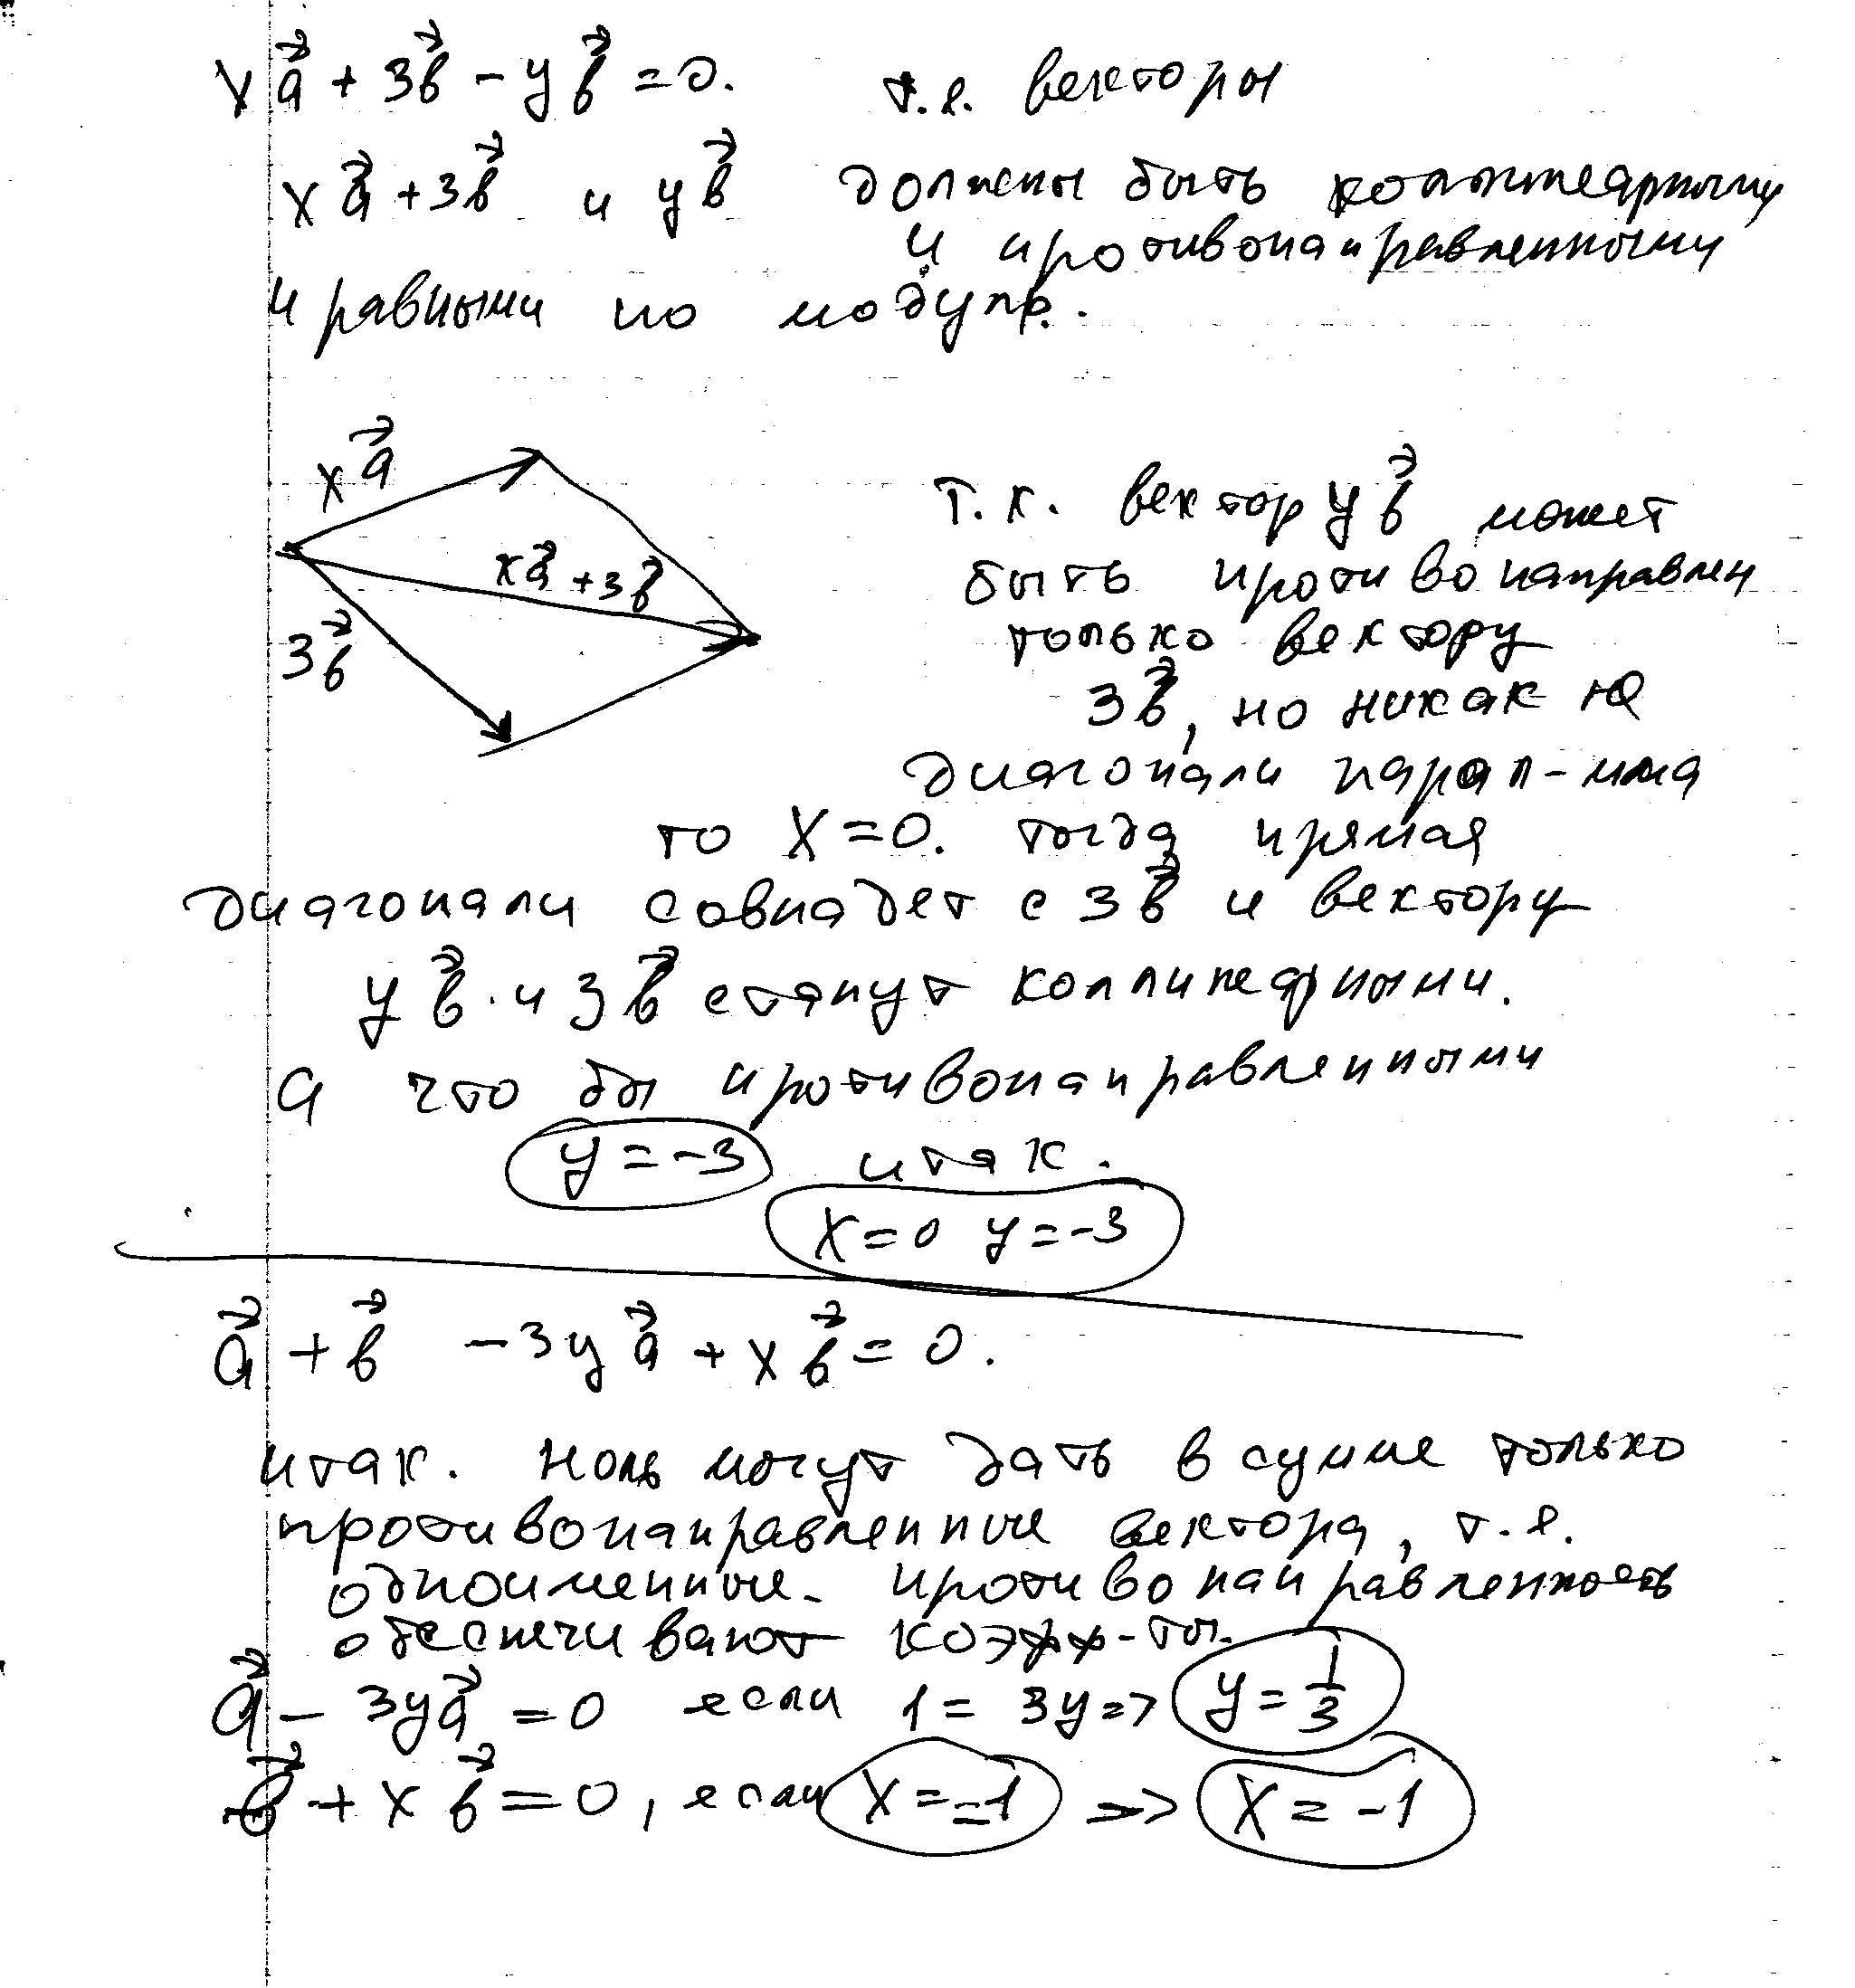 x a⃗ + 3 b⃗ - y b⃗ = 0. т.е. векторы
x a⃗ + 3 b⃗ и y b⃗ должны быть коллинеарными
и противонаправленными
и равными по модулю.
x a⃗
x a⃗ + 3 b⃗
3 b⃗
т.к. вектор y b⃗ может
быть противонаправлен
только вектору
3 b⃗, но никак не
диагонали парал-мма
то x = 0. тогда прямая
диагонали совпадет с 3 b⃗ и вектору
y b⃗ и 3 b⃗ станут коллинеарными.
а что бы противонаправленными
y = -3 итак.
x = 0 y = -3
a⃗ + b⃗ - 3 y a⃗ + x b⃗ = 0.
итак. ноль могут дать в сумме только
противонаправленные вектора, т.е.
одноименные. противонаправленность
обеспечивают коэфф-ты.
a⃗ - 3 y a⃗ = 0 если 1 = 3y => y = 1/3
b⃗ + x b⃗ = 0, если x = -1 => x = -1